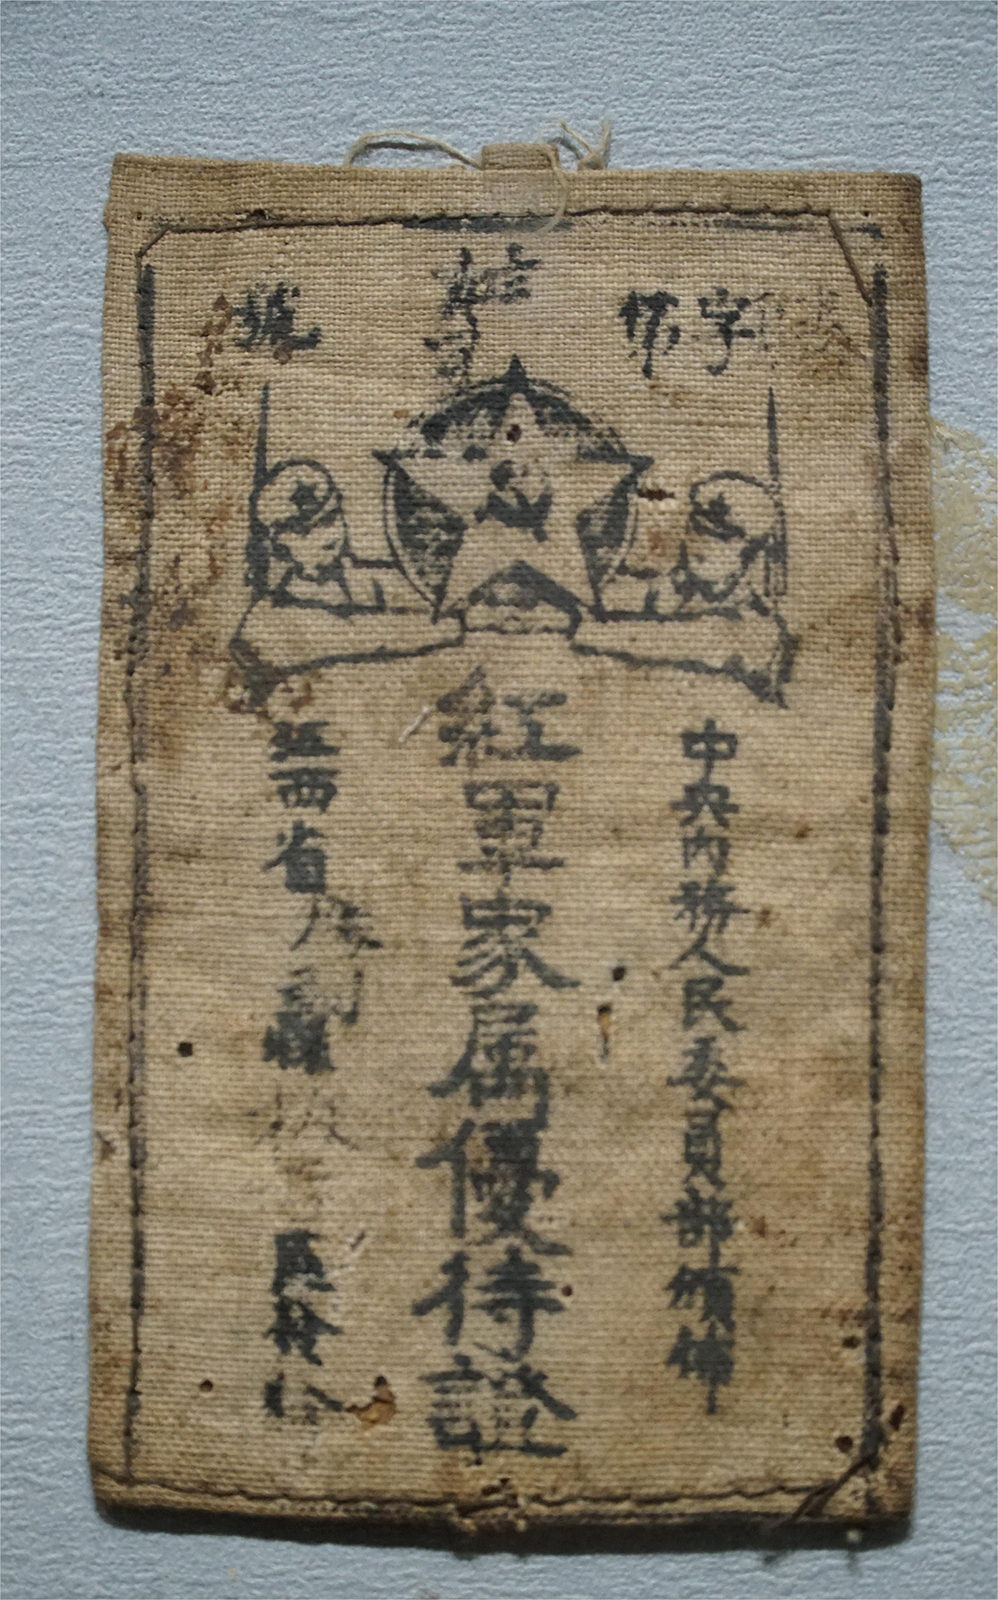 字第 號
中央內務人民委員部頒佈
紅軍家属優待證
江西省勝利縣
區發給